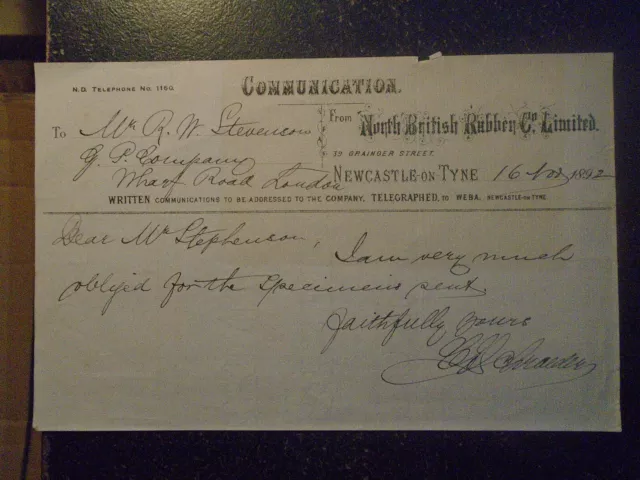 N.D. TELEPHONE No. 1160
COMMUNICATION.
To Mr R. W. Stevenson
G. P. Company
Wharf Road London
From North British Rubber Co. Limited.
39 GRAINGER STREET.
NEWCASTLE-ON-TYNE 16 Nov 1892
WRITTEN COMMUNICATIONS TO BE ADDRESSED TO THE COMPANY, TELEGRAPHED, TO WEBA. NEWCASTLE-ON-TYNE.
Dear Mr Stephenson,
I am very much
obliged for the specimens sent
faithfully yours